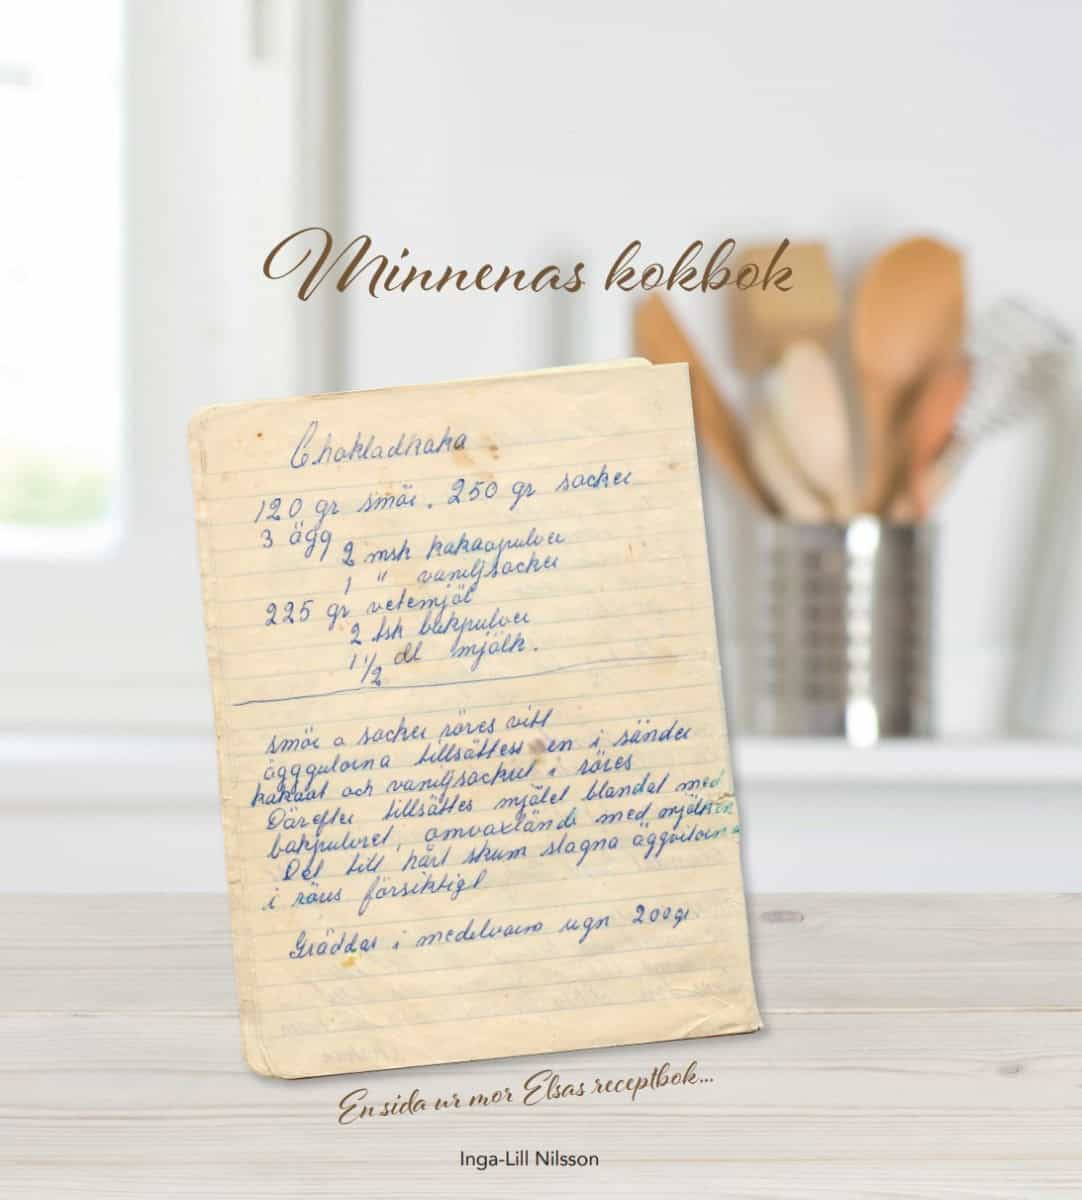 Minnenas kokbok
Chokladkaka
120 gr smör. 250 gr socker
3 ägg
2 msk kakaopulver
1 " vaniljsocker
225 gr vetemjöl
2 tsk bakpulver
1 1/2 dl mjölk.
smör o socker röres vitt
ägggulorna tillsättess en i sänder
kakaot och vaniljsockret i röres
Därefter tillsättes mjölet blandat med
bakpulvret, omvaxlände med mjölken
Det till hårt skum slagna äggvitorna
i röres försiktigt
Gräddas i medelvarm ugn 200gr
En sida ur mor Elsas receptbok...
Inga-Lill Nilsson